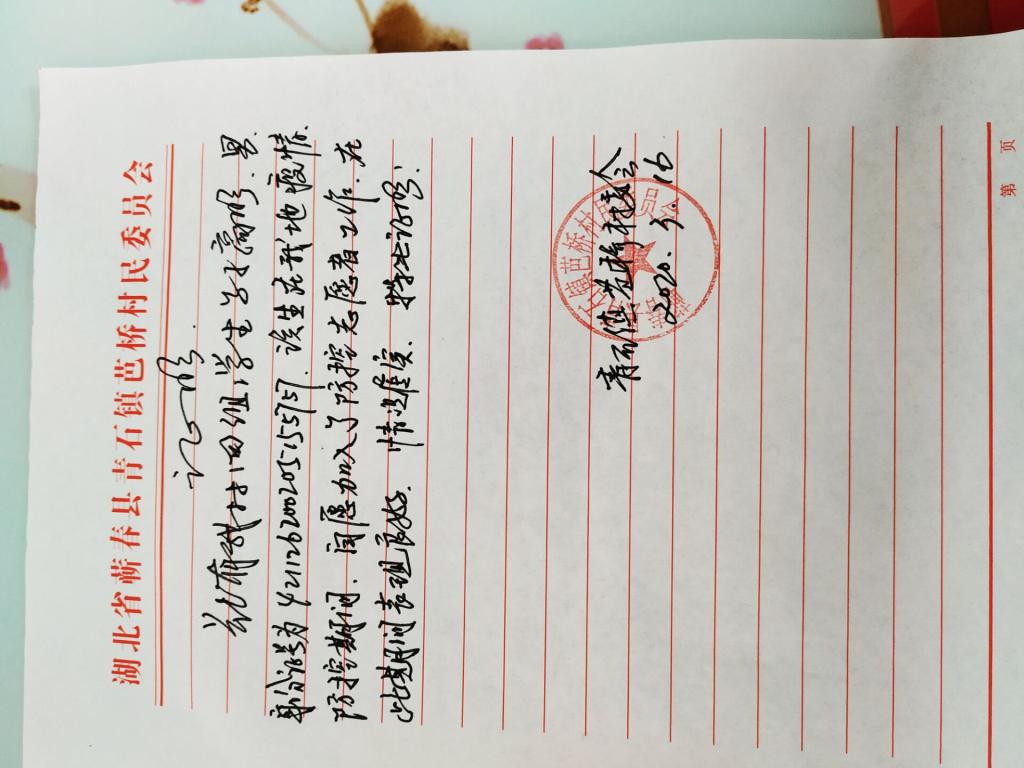 湖北省蕲春县青石镇芭桥村民委员会
证明
兹有我村四组学生高明.男.
身份证号为421126200205155757.该生在我地疫情.
防控期间.自愿加入了防控志愿者工作.在
此期间表现良好.情况属实.特此证明!
青石镇芭桥村委会
2020.3.16
第 页